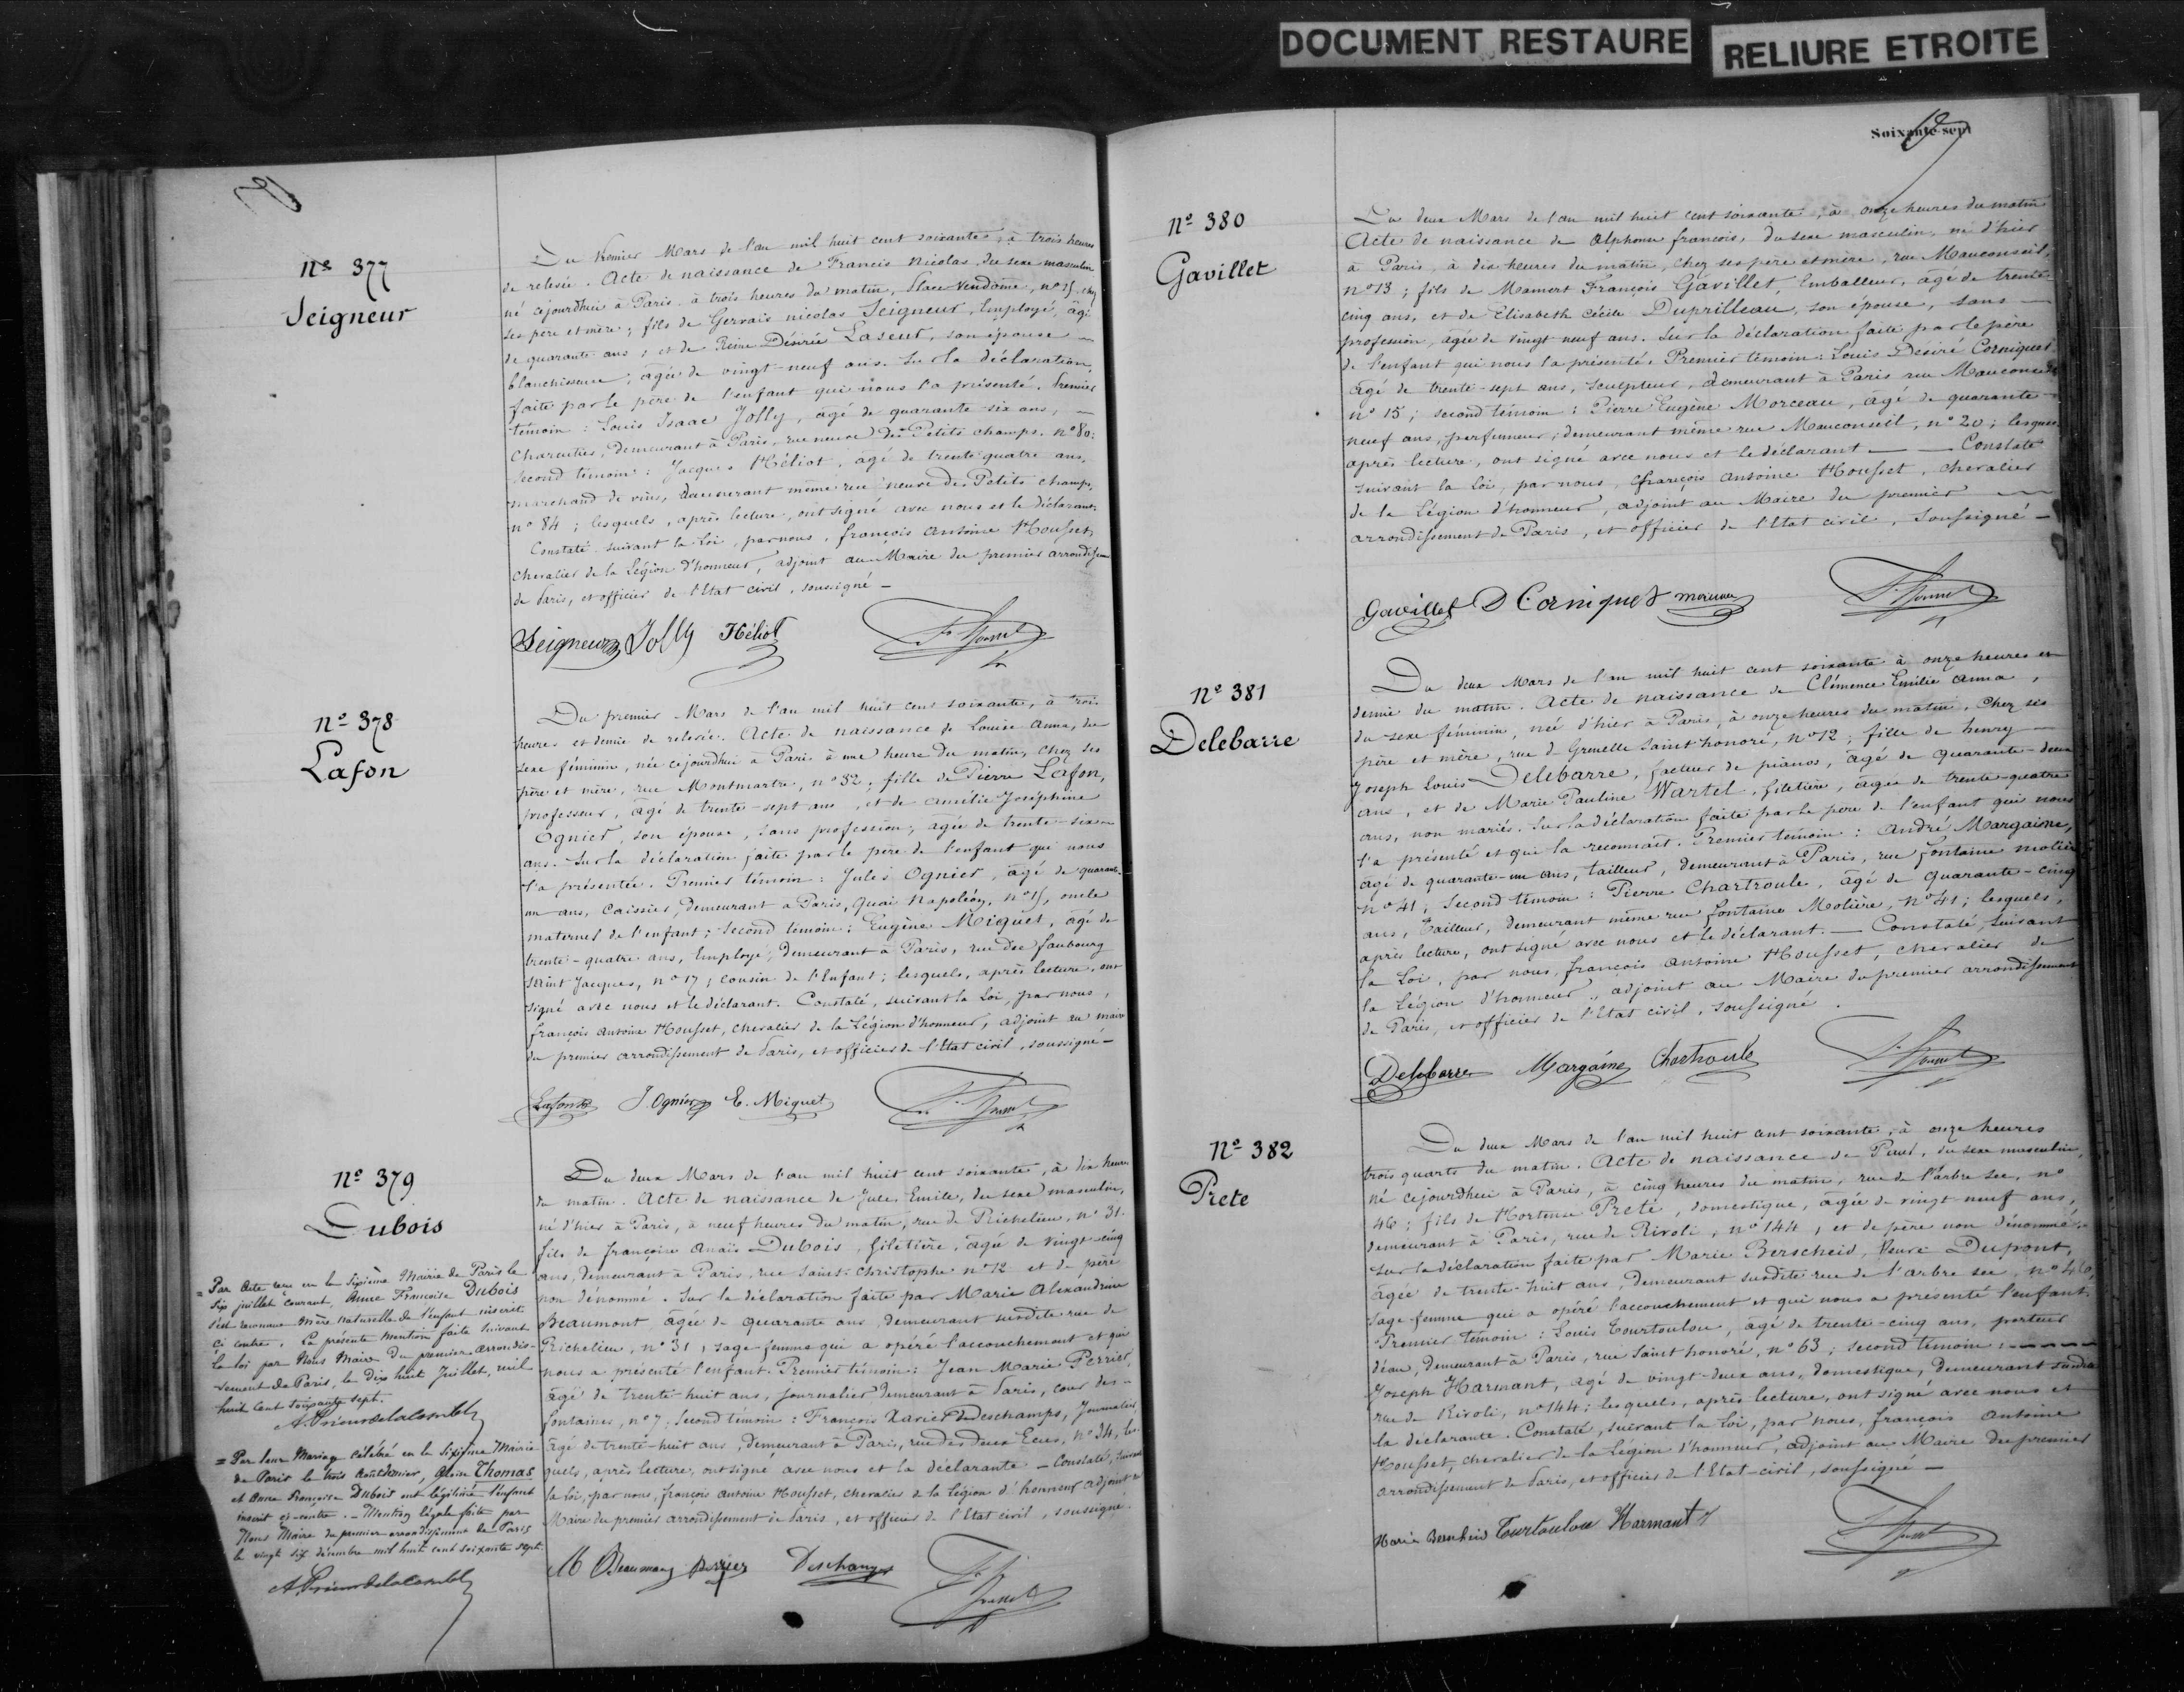 DOCUMENT RESTAURE
RELIURE ETROITE
nº 377
Seigneur
Du premier Mars de l'an mil huit cent soixante, à trois heures
de relevée. Acte de naissance de Francis Nicolas, du sexe masculin
né cejourdhui à Paris à trois heures du matin, Place Vendôme, nº 15, chez
ses père et mère; fils de Gervais Nicolas Seigneur, Employé, âgé
de quarante ans; et de Reine Désirée Laseur, son épouse
blanchisseuse, âgée de vingt-neuf ans. Sur la déclaration
faite par le père de l'enfant qui nous l'a présenté. Premier
témoin: Louis Isaac Jolly, âgé de quarante-six ans, —
Charcutier, demeurant à Paris, rue neuve des Petits champs, nº 80:
Second témoin: Jacques Héliot, âgé de trente quatre ans,
marchand de vins, demeurant même rue neuve des Petits champs,
nº 84; lesquels, après lecture, ont signé avec nous et le déclarant.
Constaté suivant la Loi, par nous, françois Antoine Housset,
chevalier de la Légion d'honneur, adjoint au Maire du premier arrondissement
de Paris, et officier de l'Etat civil, soussigné —
Seigneur Jolly Héliot
nº 378
Lafon
Du premier Mars de l'an mil huit cent soixante, à trois
heures et demie de relevée. Acte de naissance de Louise Anna, du
sexe féminin, née cejourdhui à Paris à une heure du matin, chez ses
père et mère, rue Montmartre, nº 52; fille de Pierre Lafon,
professeur, âgé de trente-sept ans, et de Amélie Joséphine
Ognier, son épouse, sans profession, âgée de trente-six
ans. Sur la déclaration faite par le père de l'enfant qui nous
l'a présentée. Premier témoin: Jules Ognier, âgé de quarante-
un ans, Caissier, demeurant à Paris, Quai Napoléon, nº 15, oncle
maternel de l'enfant; Second témoin: Eugène Miquet, âgé de
trente-quatre ans, Employé, demeurant à Paris, rue du faubourg
Saint Jacques, nº 17, cousin de l'Enfant; lesquels, après lecture, ont
signé avec nous et le déclarant. Constaté, suivant la Loi, par nous,
françois Antoine Housset, chevalier de la Légion d'honneur, adjoint au maire
du premier arrondissement de Paris, et officier de l'Etat civil, soussigné —
Lafon J. Ognier E. Miquet
nº 379
Dubois
Du deux Mars de l'an mil huit cent soixante, à dix heures
du matin. Acte de naissance de Jules Emile, du sexe masculin,
né d'hier à Paris, à neuf heures du matin, rue de Richelieu, nº 31.
fils de françoise Anaïs Dubois, Giletière, âgée de vingt-cinq
ans, demeurant à Paris, rue Saint-Christophe nº 12 et de père
non dénommé. Sur la déclaration faite par Marie Alexandrine
Beaumont âgée de quarante ans, demeurant susdite rue de
Richelieu, nº 31, sage-femme qui a opéré l'accouchement et qui
nous a présenté l'enfant. Premier témoin: Jean Marie Perrier,
âgé de trente huit ans, journalier, demeurant à Paris, cour des
fontaines, nº 7; Second témoin: François Xavier Deschamps, Journalier,
âgé de trente-huit ans, demeurant à Paris, rue des deux Ecus, nº 34, les-
quels, après lecture, ont signé avec nous et la déclarante — Constaté, suivant
la Loi, par nous, françois Antoine Housset, chevalier de la Légion d'honneur adjoint au
Maire du premier arrondissement de Paris, et officier de l'Etat civil, soussigné.
M Beaumont Perrier Deschamps
= Par Acte reçu en la Sixième Mairie de Paris le
Six juillet courant, Anne Françoise Dubois
s'est reconnue mère naturelle de l'enfant inscrit
ci contre. La présente Mention faite suivant
la loi par Nous Maire du premier arrondis-
-sement de Paris, le dix huit Juillet, mil
huit cent soixante sept.
= Par leur Mariage célébré en la Sixième Mairie
de Paris le trois Août dernier, Thomas
et Anne Françoise Dubois ont légitimé l'enfant
inscrit ci-contre. — Mention légale faite par
Nous Maire du premier arrondissement de Paris
le vingt six décembre mil huit cent soixante sept.
Soixante-sept
nº 380
Gavillet
Du deux Mars de l'an mil huit cent soixante, à onze heures du matin
Acte de naissance de Alphonse françois, du sexe masculin, né d'hier
à Paris, à dix heures du matin, chez ses père et mère, rue Mauconseil,
nº 13; fils de Mamert François Gavillet, Emballeur, âgé de trente
cinq ans, et de Elisabeth Cécile Duprilleau, son épouse, sans —
profession, âgée de vingt neuf ans. Sur la déclaration faite par le père
de l'enfant qui nous l'a présenté. Premier témoin: Louis Désiré Corniquet
âgé de trente-sept ans, Sculpteur, demeurant à Paris rue Mauconseil
nº 15; second témoin: Pierre Eugène Morceau, âgé de quarante-
neuf ans, parfumeur, demeurant même rue Mauconseil, nº 20; lesquels
après lecture, ont signé avec nous et le déclarant — — Constaté
suivant la Loi, par nous, françois Antoine Housset, chevalier
de la Légion d'honneur, adjoint au Maire du premier
arrondissement de Paris, et officier de l'Etat civil, soussigné —
Gavillet D Corniquet
nº 381
Delebarre
Du deux Mars de l'an mil huit cent soixante à onze heures et
demie du matin. Acte de naissance de Clémence Emilie Anna,
du sexe féminin, née d'hier à Paris, à onze heures du matin, chez ses
père et mère, rue de Grenelle Saint honoré, nº 12; fille de henry
Joseph Louis Delebarre, facteur de pianos, âgé de quarante-deux
ans, et de Marie Pauline Wartel, giletière, âgée de trente-quatre
ans, non mariés. Sur la déclaration faite par le père de l'enfant qui nous
l'a présenté et qui la reconnait. Premier témoin: André Margaine,
âgé de quarante-un ans, tailleur, demeurant à Paris, rue fontaine molière
nº 41; Second témoin: Pierre Chartroule, âgé de quarante-cinq
ans, Tailleur, demeurant même rue fontaine Molière, nº 41; lesquels,
après lecture, ont signé avec nous et le déclarant. — Constaté, suivant
la Loi, par nous, françois Antoine Housset, chevalier de
la Légion d'honneur, adjoint au Maire du premier arrondissement
de Paris, et officier de l'Etat civil, soussigné.
Delebarre Margaine Chartroule
nº 382
Prete
Du deux Mars de l'an mil huit cent soixante, à onze heures
trois quarts du matin. Acte de naissance de Paul, du sexe masculin,
né cejourdhui à Paris, à cinq heures du matin, rue de l'arbre sec, nº
46; fils de Hortense Prete, domestique, âgée de vingt-neuf ans,
demeurant à Paris, rue de Rivoli, nº 144, et de père non dénommé.
Sur la déclaration faite par Marie Berscheid, Veuve Dupont,
âgée de trente-huit ans, demeurant susdite rue de l'arbre sec, nº 46,
sage-femme qui a opéré l'accouchement et qui nous a présenté l'enfant.
Premier témoin: Louis Tourtoulou, âgé de trente-cinq ans, porteur
d'eau, demeurant à Paris, rue Saint honoré, nº 63; second témoin:
Joseph Harmant, âgé de vingt-deux ans, domestique, demeurant susdite
rue de Rivoli, nº 144: lesquels, après lecture, ont signé avec nous et
la déclarante. Constaté, suivant la Loi, par nous, françois Antoine
Housset, chevalier de la Légion d'honneur, adjoint au Maire du premier
arrondissement de Paris, et officier de l'Etat-civil, soussigné —
Marie Berscheid Tourtoulou Harmant